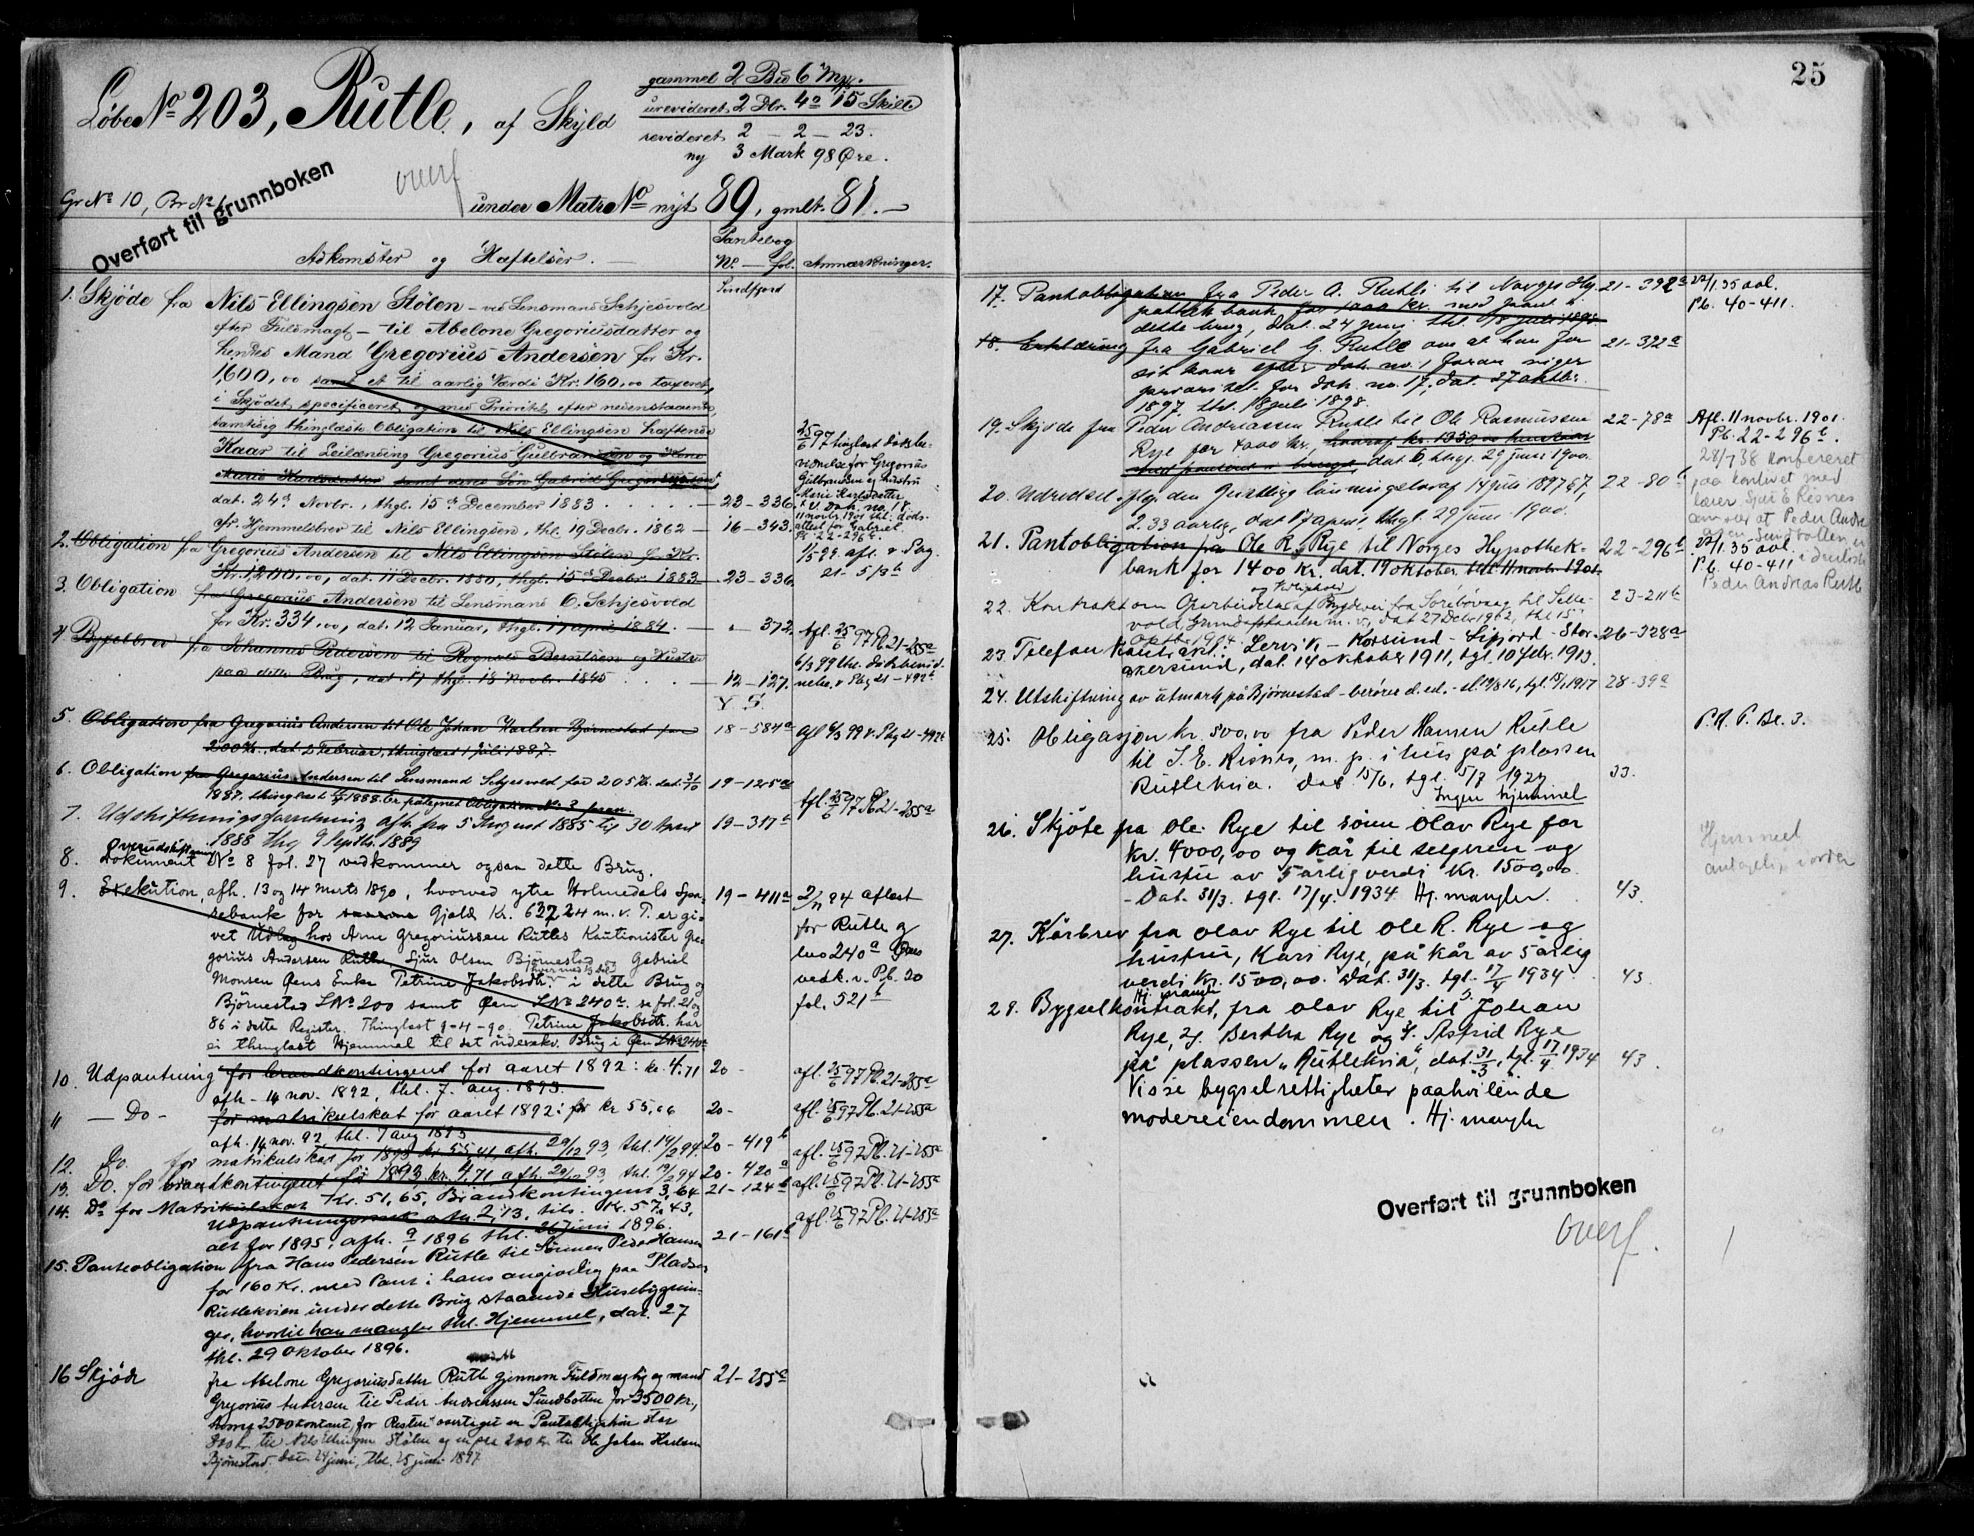 25
Løbe No 203, Rutle, af Skyld
gammel 2 Bu 6 Mkr.
urevideret 2 Dlr. 4 o 15 Skill
revideret 2 – 2 – 23.
ny 3 Mark 98 Øre.
Overført til grunnboken
overf
Gr No 10, Br No
under Matr No nyt 89, gmlt. 81. –
Adkomster og Hæftelser. –
Pantebog
No. – fol. Anmærkninger.
Søndfjord
1. Skjøde fra Nils Ellingsen Stølen – ved Lensmand Schjesvold
efter Fuldmagt, – til Abelone Gregoriusdatter og
hendes Mand Gregorius Andersen for Kr.
1,600,00 samt et til aarlig Værdi Kr. 160,00 taxeret,
i Skjødet specificeret og med Prioritet efter nedenstaaende
samtidig thinglæste Obligation til Nils Ellingsen hæftende
Kaar til Leilænding Gregorius Gulbransen og Kone
Marie Karlsdatter samt deres Søn Gabriel Gregoriussen,
dat. 24de Novbr., thgl. 15de December 1883 – 23 – 336.
cfr. Hjemmelsbrev til Nils Ellingsen, thl. 19 Decbr. 1862 – 16 – 343.
25/6 97 thinglæst Dødsbe-
vidnelse for Gregorius
Gulbransen og hustru
Marie Karlsdatter
2. Obligation fra Gregorius Andersen til Nils Ellingsen Stølen for Kr.
Kr. 1200,00, dat. 11 Decbr. 1880, thgl. 15de Decbr. 1883 – 23 – 336.
21 – 513 b
3. Obligation fra Gregorius Andersen til Lensmand C. Schjesvold
for Kr. 334,00, dat. 12 Januar, thgl. 17 april 1884. – " – 372.
Afl. 25/6 97 Pb. 21–255a
4. Bygselbrev fra Johannes Pedersen til Rognald Berntsen og Hustru
paa dette Brug, dat. 17 thgl. 18 Novbr. 1845 – 12 – 127.
6/3 99 thl. Dødsbevid-
nelse, v. Pbg 21 – 492a
Y. S.
5. Obligation fra Gregorius Andersen til Ole Johan Karlsen Bjørnestad for
200 Kr. dat. 2 Februar, thinglæst 1 Juli 1887.
18 – 584a afl 6/3 99 v. Pbg 21–492b
6. Obligation fra Gregorius Andersen til Lensmand Schjesvold for 205 Kr. dat. 31/10
1887, thinglæst 1888. Er paategnet Obligation No. 3 foran.
19 – 125a
Afl. 25/6 97 Pb. 21–255a
7. Udskiftningsforretning afh. fra 5 August 1885 til 30 April
1888 thg 9 Septbr. 1889
19 – 317b
Overudskiftning
8. Dokument No. 8 fol. 27 vedkommer ogsaa dette Brug.
9. Exekution, afh. 13 og 14 Marts 1890, hvorved ytre Holmedals Spa-
rebank for Gjæld Kr. 637,24 m. v. T. er gi-
vet Udlæg hos Arne Gregoriussen Rutles Kautionister Gre-
gorius Andersen Rutle, Sjur Olsen Bjørnestad og Gabriel
Monsen Øens Enke Petrine Jakobsdtr. i dette Brug og
Bjørnestad LNo 200 samt Øen LNo 240a. se fol. 21 og
86 i dette Register. Thinglæst 9–4–90. Petrine Jakobsdtr. har
ei thinglæst Hjemmel til det udlagte Brug i Øen LNo 240a
19 – 411a
2/11 94 aflæst
for Rutle og
lno 240a Øen
vedk. v. Pb. 20
fol. 521b
10. Udpantning for brandkontingent for aaret 1892: kr. 4.71
afh – 14 nov. 1892, thl. 7. aug. 1893.
20 – afl. 25/6 97 Pb. 21–255a
11 – Do – for matrikulskat for aaret 1892: for kr 55,06
afh. 14 nov. 92, thl. 7 aug 1893
20 – afl. 25/6 97 Pb. 21–255a
12. Do. for matrikulskat for 1893 kr. 55,41, afh. 29/12 93, thl. 19/2 94. 20 – 419b afl. 25/6 97 Pb. 21–255a
13. Do. for brandkontingent for 1893, kr. 4,71 afh. 29/12 93, thl. 19/2 94 20 – 420a afl. 25/6 97 Pb. 21–255a
14. Do for Matrikulskat Kr. 51,65, Brandkontingent 3,64 21 – 124b
Udpantningsomk. Kr. 2,13, tils. Kr. 57,43,
alt for 1895, afh. 1896 thl. 26 Juni 1896.
afl. 25/6 97 Pb. 21–255a
15. Panteobligation fra Hans Pedersen Rutle til Sønnen Peder Hansen 21 – 161b
for 160 Kr. med Pant i hans angivelig paa Pladsen
Rutlekvien under dette Brug staaende Husebygnin-
ger, hvortil han mangler thl. Hjemmel, dat. 27
thl. 29 Oktober 1896.
16 Skjøde fra Abelone Gregoriusdatter Rutle gjennem Fuldmægtig og mand 21 – 255a
Gregorius Andersen til Peder Andreassen Sundbotten for 3500 Kr,
hvoraf 2500 kontant, for Resten overtaget en Pantobligation stor
til Nils Ellingsen Stølen og en paa 200 Kr til Ole Johan Karlsen
Bjørnestad. Dat. 24 juni, thl. 25 juni 1897
17. Pantobligation fra Peder A. Rutle til Norges Hy- 21 – 392a
pothekbank for 1400 kr. med pant i
dette brug, dat. 24 juni, thl. 18 juli 1898
22/1.35 avl.
Pb. 40–411.
18. Erklæring fra Gabriel G. Rutle om at han for 21 – 392a
sit kaar efter dok. no. 1 foran viger
prioritet for dok. no. 17, dat. 27 oktbr.
1897, thl. 18 juli 1898.
19. Skjøde fra Peder Andreassen Rutle til Ole Rasmussen 22 – 78a
Rye for 4000 kr., hvoraf kr. 1350,00
dat. 6, thgl. 29 juni 1900.
Afl. 11 novbr. 1901.
Pb. 22–296b.
28/7 38 Konfereret
paa kontoret med
20. Udredsel iflg. den Gustligg lønningslov af 14 juli 1897 § 7, 22 – 80b
2.33 aarlig, dat. 17 april, thgl. 29 juni 1900.
21. Pantobligation fra Ole R. Rye til Norges Hypothek- 22 – 296b
bank for 1400 kr. dat. 19 oktober, thl. 11 novbr. 1901.
22/1.35 avl.
Pb. 40–411
Peder Andreas Rutle
22. Kontrakt om Oparbeidelse af Bygdevei fra Sørebøvaag til Selle-
vold
23–211b
23. Telefon kontrakt: Lervik – Korssund – Lifjord – Stor-
akersund, dat. 14 oktober 1911, tgl. 10 febr. 1913.
26–328a
24. Utskiftning av utmark på Bjørnestad – berører d. ed. – sl. 19/8 16, tgl. 15/1 1917 28–39a
25. Obligasjon kr. 500,00 fra Peder Hansen Rutle
til I. E. Risnes, m. p. i hus på plassen
Rutlekvia. dat. 15/6, tgl. 15/7 1927
Ingen hjemmel
33.
P. R. P. Bl. 3.
26. Skjøte fra Ole Rye til sønn Olav Rye for
Kr. 4000,00 og kår til selgeren og
hustru av 5 årlig verdi Kr. 1500,00.
– Dat. 31/3. tgl. 17/4. 1934 Hj. mangler.
43.
Hjemmel
antagelig iorden
27. Kårbrev fra Olav Rye til Ole R. Rye og
hustru, Kari Rye, på kår av 5 årlig
verdi Kr. 1500,00. Dat. 31/3. tgl. 17/4 1934
Hj. mangler
43.
28. Bygselkontrakt, fra Olav Rye til Johan
Rye, 2. Bertha Rye og 3. Astrid Rye
på plassen "Rutlekvia", dat. 31/3, tgl. 17/4 1934
Visse bygselrettigheter paahvilende
modereiendommen. Hj. mangler
43.
Overført til grunnboken
overf.